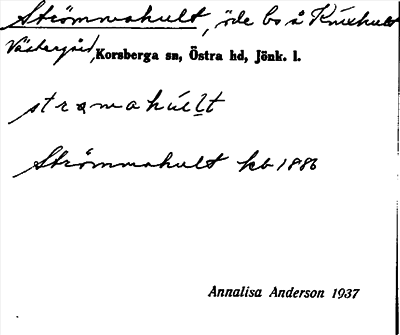 Strömmahult, öde bo å Knixhult
Västergård, Korsberga sn, Östra hd, Jönk. l.
strømahúl̲t
Strömmahult kb 1886
Annalisa Anderson 1937